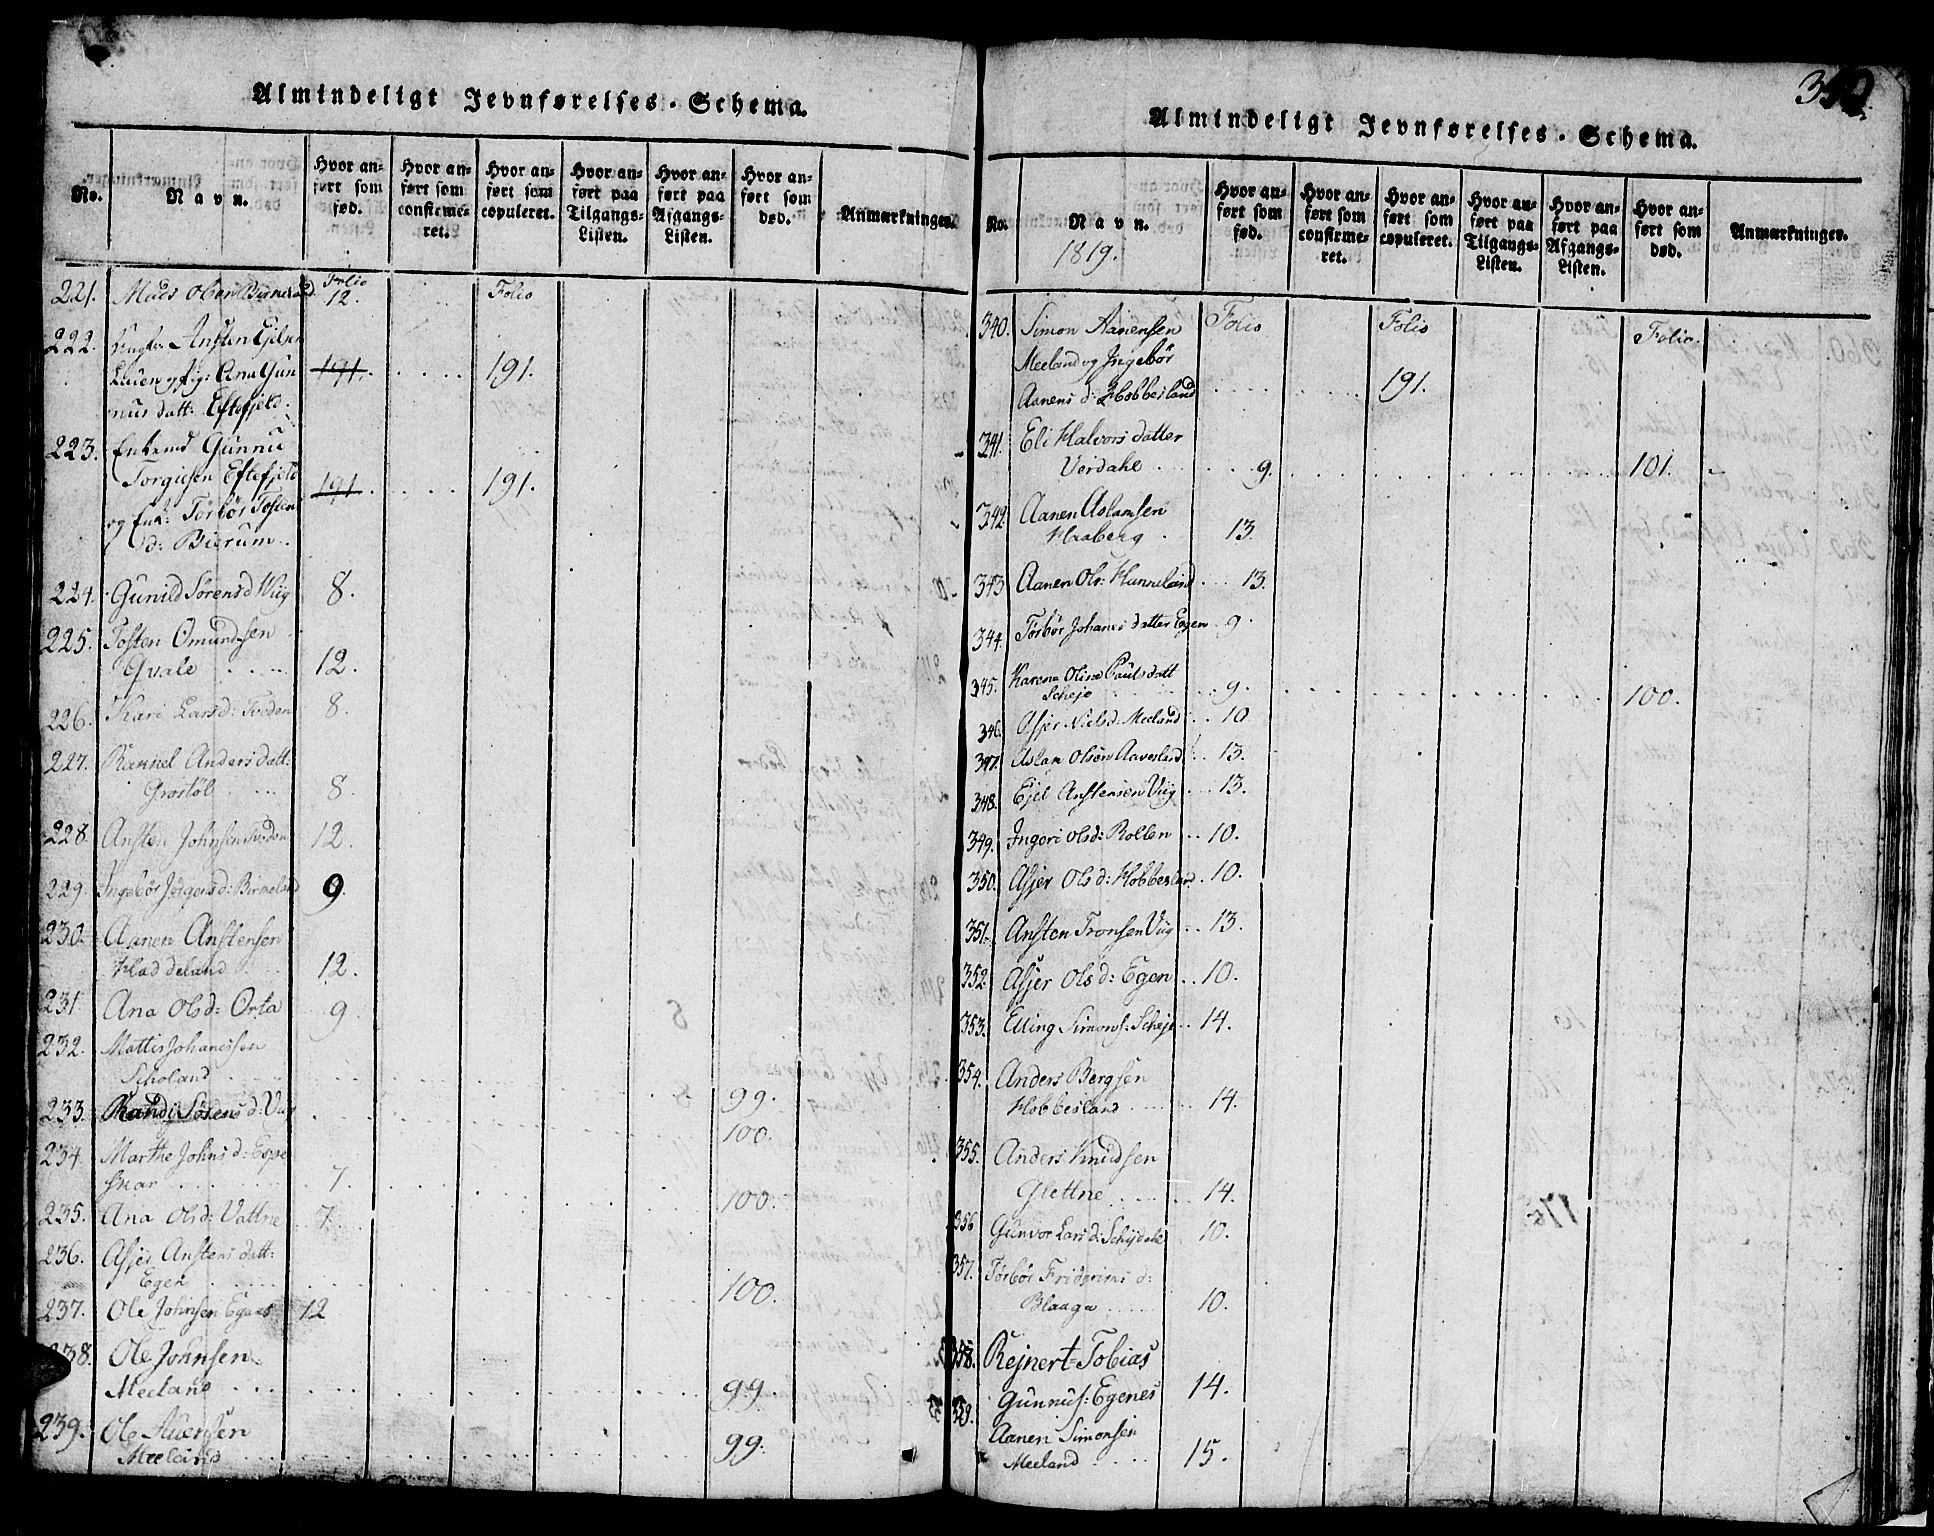 Almindeligt Jevnførelses-Schema.
No.
Navn.
Hvor an-
ført som
fød.
Hvor an-
ført som
confirme-
ret.
Hvor an-
ført som
copuleret.
Hvor an-
ført paa
Tilgangs-
Listen.
Hvor an-
ført paa
Afgangs-
Listen.
Hvor an-
ført som
død.
Anmærkninger.
Folio Folio
221. Mads Olsen Birkeland 12.
222. Ungkr. Ansten Ejelsen
Lauen og pig: Ana Gun 191. 191.
nus datt: Eftefjeld.
223. Enkemd Gunnu
Torgiusen Eftefjeld 191. 191.
og Enk: Torbør Tostens
d: Bierum.
224. Gunild Sørensd Viig 8.
225. Tosten Omundsen
Qvale 12.
226. Kari Larsd: Tveden 8.
227. Rannel Anders datt:
Grostøl 8.
228. Ansten Johnsen Tveden 12.
229. Ingebør Jørgensd: Birkeland 9.
230. Aanen Anstensen
Haddeland 12.
231 Ana Olsd: Orta 9
232. Mattis Johanessen
Scholand 99.
233. Randi Sørens d: Viig 100.
234. Marthe Johns d: Espe
snar 7.
235. Ana Olsd: Vattne 7. 100.
236. Asjer Anstens datt:
Egen 100.
237. Ole Johnsen Egenes 12
238. Ole Johnsen
Meeland 99.
239. Ole Auensen
Meeland 99.
350
Almindeligt Jevnførelses-Schema.
No.
Navn.
1819.
Hvor an-
ført som
fød.
Hvor an-
ført som
confirme-
ret.
Hvor an-
ført som
copuleret.
Hvor an-
ført paa
Tilgangs-
Listen.
Hvor an-
ført paa
Afgangs-
Listen.
Hvor an-
ført som
død.
Anmærkninger.
340. Simon Aanensen Folio Folio Folio
Meeland og Ingebør
Aanens d: Hobbesland 191.
341. Eli Halvors datter
Verdahl 9. 101.
342. Aanen Aslamsen
Haaberg 13.
343 Aanen Ols: Hunneland 13.
344. Torbør Johanes datter Egen 9.
345. Karena Oline Pauls datt
Scheje 9. 100.
346. Asjer Nielsd: Meeland 10
347. Aslam Olsen Aavesland 13.
348. Ejel Anstensen Viig 13.
349. Ingeri Olsd: Rollen 10.
350. Asjer Ols d: Hobbesland 10.
351. Ansten Tronsen Viig 13.
352. Asjer Ols d: Egen 10.
353. Elling Simons: Scheje 14.
354. Anders Bergsen
Hobbesland 14.
355. Anders Knudsen
Glettne 14.
356 Gunvor Lars d: Schijdahl 10.
357. Torbør Friderims d:
Blaaga 10.
358. Rejnert Tobias
Gunnus: Egenes 14.
359. Aanen Simonsen
Meeland 15.